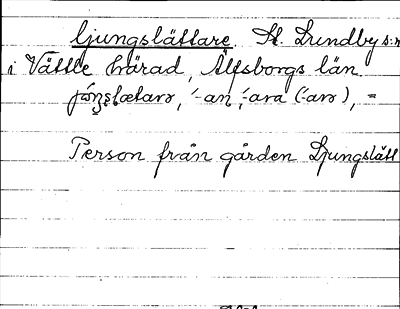 ljungslättare St. Lundby s:n
i Vättle härad, Älfsborgs län.
-an, -ara (-arə), =
Person från gården Ljungslätt